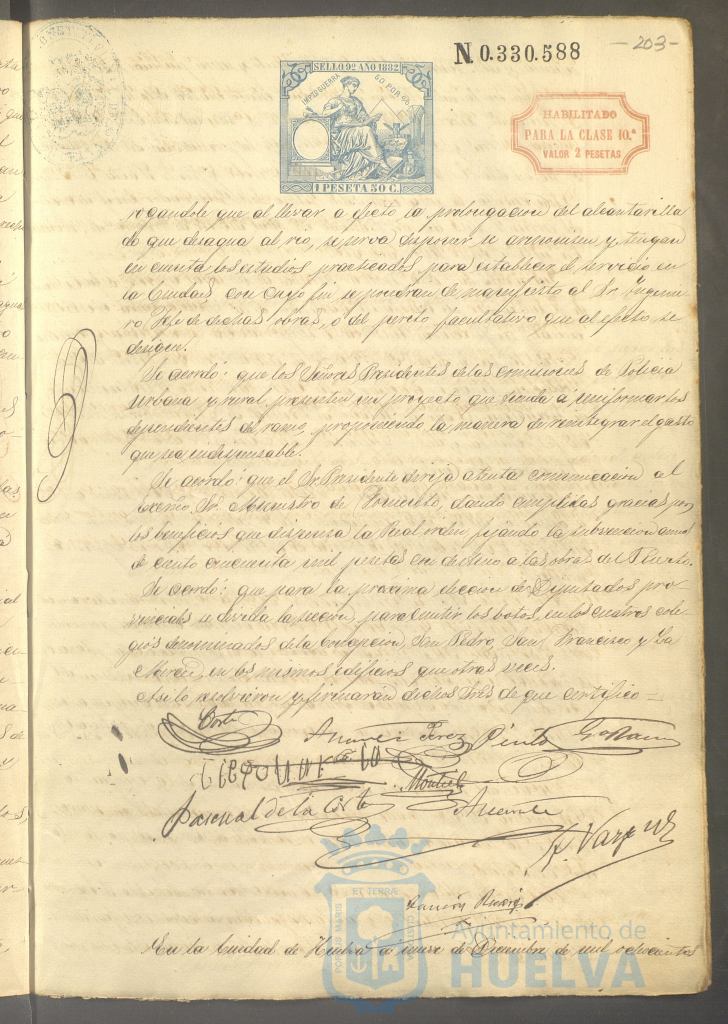 N 0.330.588
- 203 -
SELLO 9º AÑO 1882
IMPTº GUERRA 50 POR 00
1 PESETA 50 C.
HABILITADO
PARA LA CLASE 10.ª
VALOR 2 PESETAS
rogandole que al llevar a efecto la prolongacion del alcantarilla
do que desagua al rio, se sirva disponer se armonisen y tengan
en cuenta los estudios practicados para establecer el servicio en
la Ciudad con cuyo fin se pondran de manifiesto al Sr. Ingenie-
ro Jefe de dichas obras, o del perito facultativo que al efecto se
designe.
Se acordó: que los Señores Presidentes de las comisiones de Policia
Urbana y rural, presenten un proyecto que tienda á uniformar los
dependientes de ramo, proponiendo la manera de reintegrar el gasto
que sea indispensable.
Se acordó: que el Sr. Presidente dirija atenta comunicacion al
Excmo. Sr. Ministro de Fomento, dando cumplidas gracias por
los beneficios que dispensa la Real orden fijando la subvencion anual
de ciento cincuenta mil pesetas con destino a las obras del Puerto.
Se acordó: que para la proxima eleccion de Diputados pro-
vinciales se divida la seccion, para emitir los botos, en los cuatro cole-
gios denominados de la Concepcion, San Pedro, San Francisco y La
Merced, en los mismos edificios que otras veces.
Asi lo resolvieron y firmaran dichos Sres de que certifico =
Corte
Perez Pinto
Montiel
Pascual de la Corte
F. Vazquez
En la Ciudad de Huelva a nueve de Diciembre de mil ochocientos
PORTUS MARIS ET TERRÆ CUSTODIA
Ayuntamiento de
HUELVA